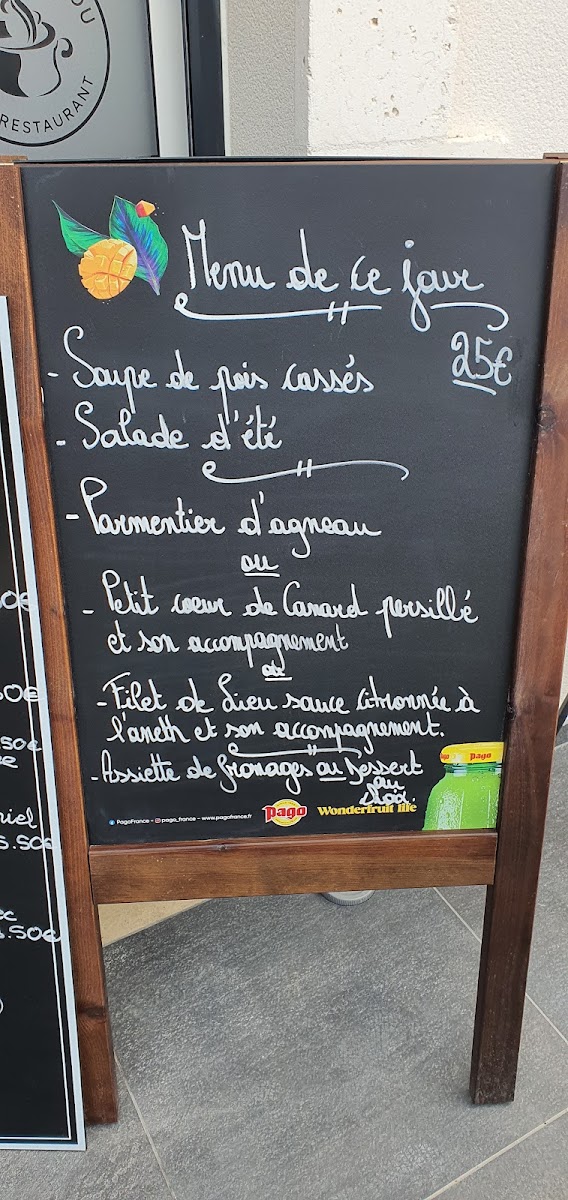 OU
RESTAURANT
Menu de ce jour
25€
- Soupe de pois cassés
- Salade d'été
- Parmentier d'agneau
ou
- Petit coeur de Canard persillé
et son accompagnement
ou
- Filet de Lieu sauce citronnée à
l'aneth et son accompagnement.
- Assiette de fromages ou Dessert
au
choix.
PagoFrance - pago_france - www.pagofrance.fr
Pago
Wonderfruit life
Pago
0€
50€
.50€
iel
5.50€
5.50€